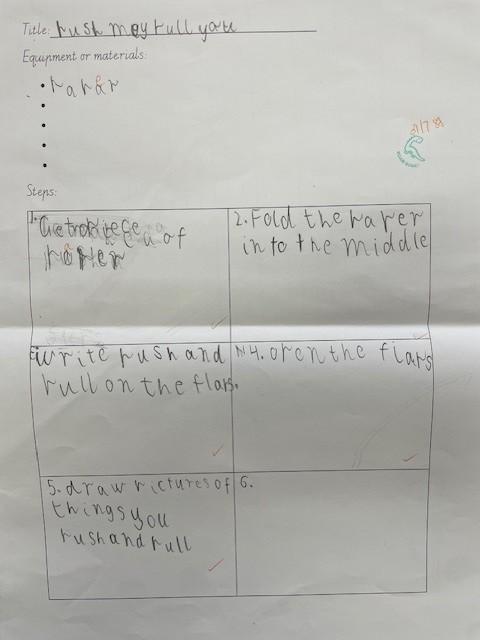 Title: push mey pull you
Equipment or materials:
• paper
•
•
•
•
31/7
Steps:
1. Get piece of
paper
2. Fold the paper
in to the middle
write push and
pull on the flaps.
4. open the flaps
5. draw pictures of
things you
push and pull
6.